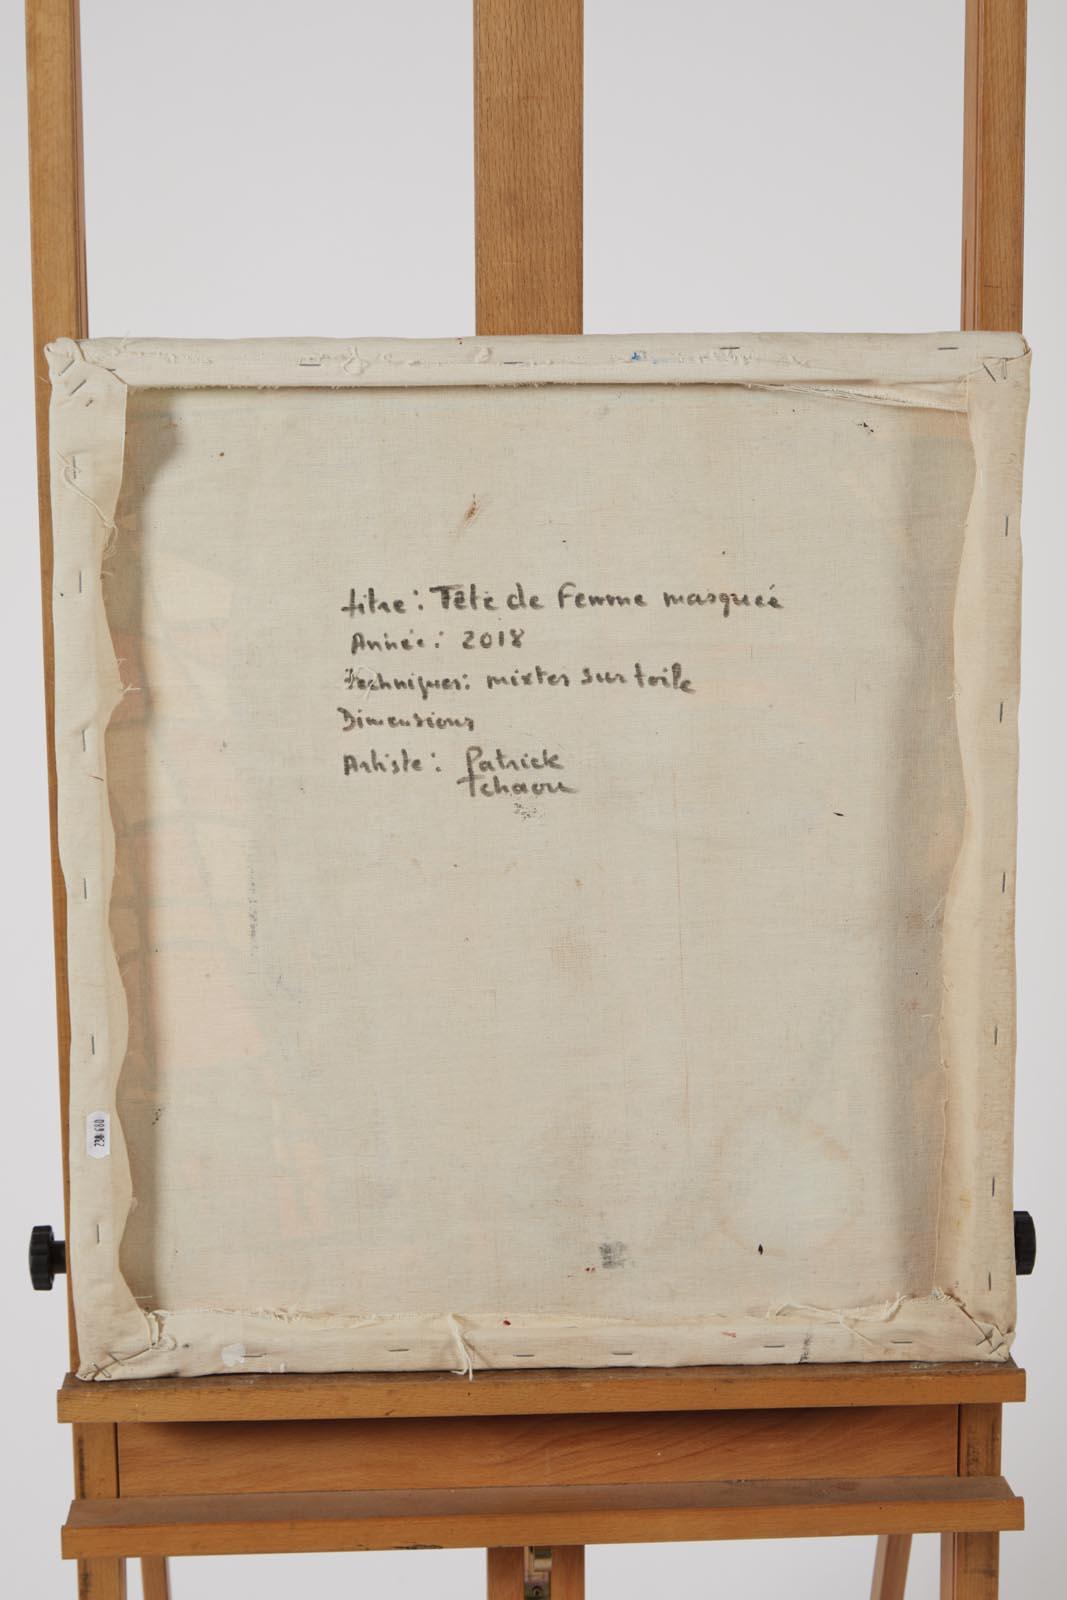 titre: Tête de Femme masqueé
Année: 2018
Techniques: mixtes sur toile
Dimensions
Artiste: Patrick
Tchaou